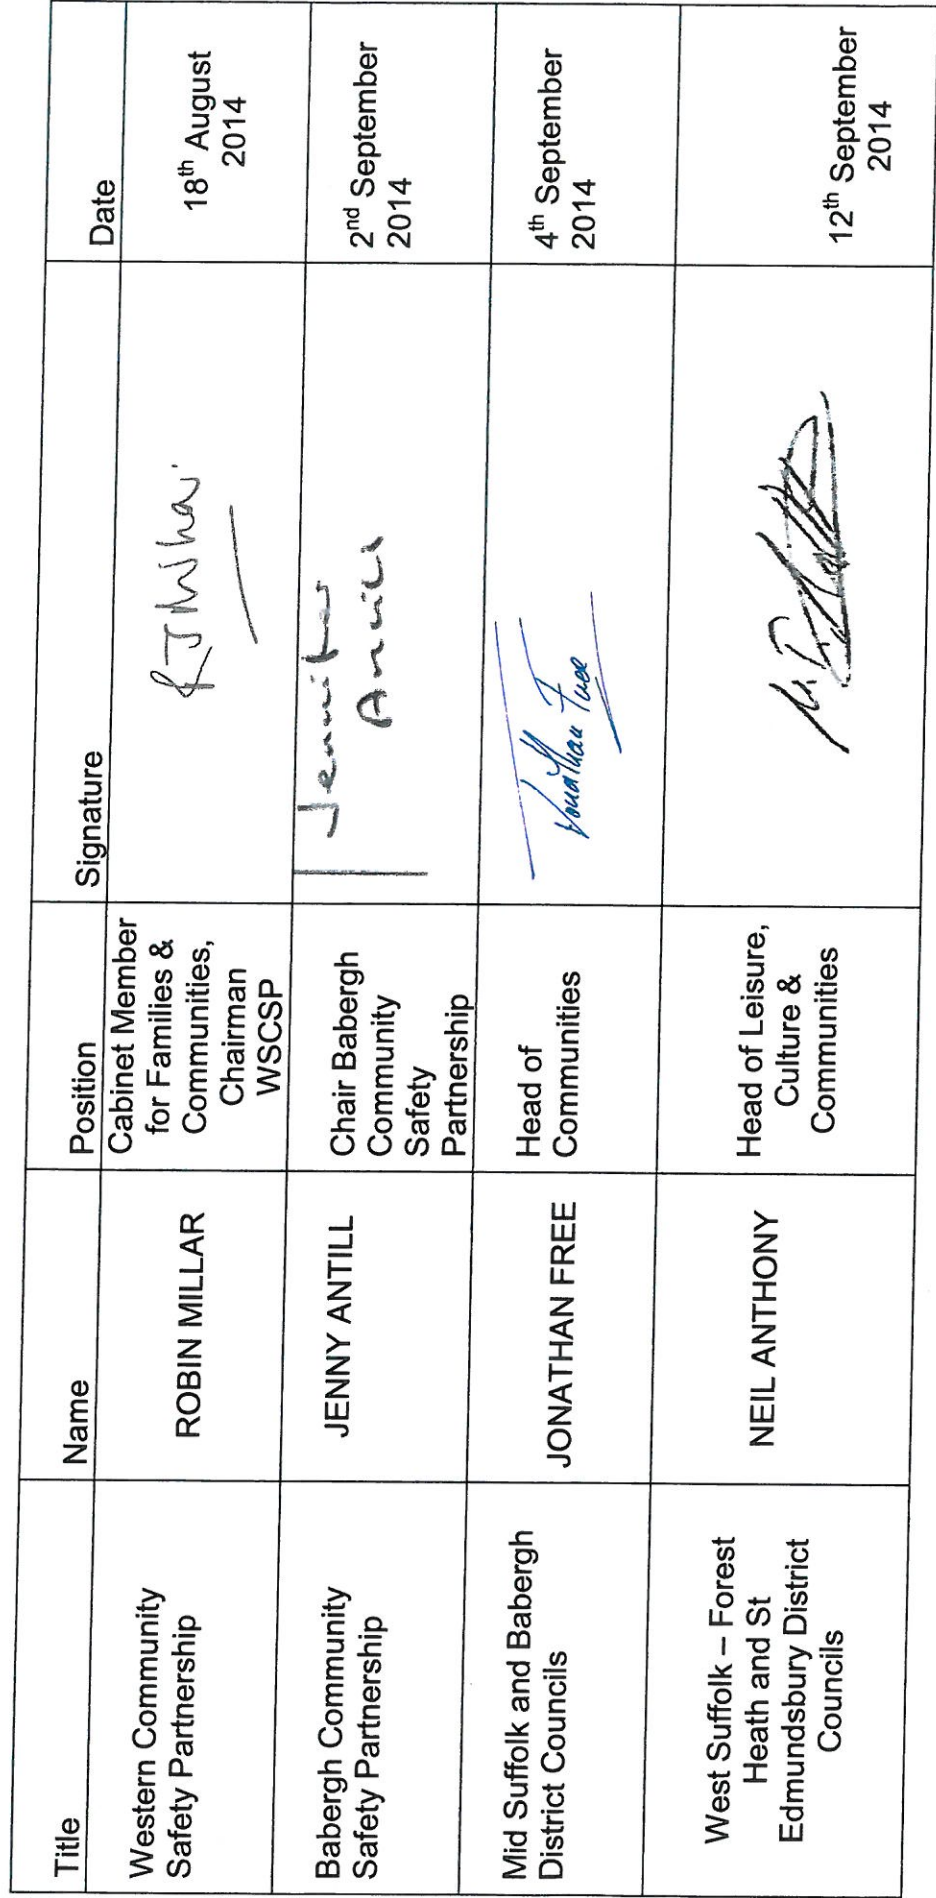 Title Name Position Signature Date
Western Community
Safety Partnership
ROBIN MILLAR
Cabinet Member
for Families &
Communities,
Chairman
WSCSP
18th August
2014
Babergh Community
Safety Partnership
JENNY ANTILL
Chair Babergh
Community
Safety
Partnership
Jennifer
Antill
2nd September
2014
Mid Suffolk and Babergh
District Councils
JONATHAN FREE
Head of
Communities
Jonathan Free
4th September
2014
West Suffolk – Forest
Heath and St
Edmundsbury District
Councils
NEIL ANTHONY
Head of Leisure,
Culture &
Communities
12th September
2014